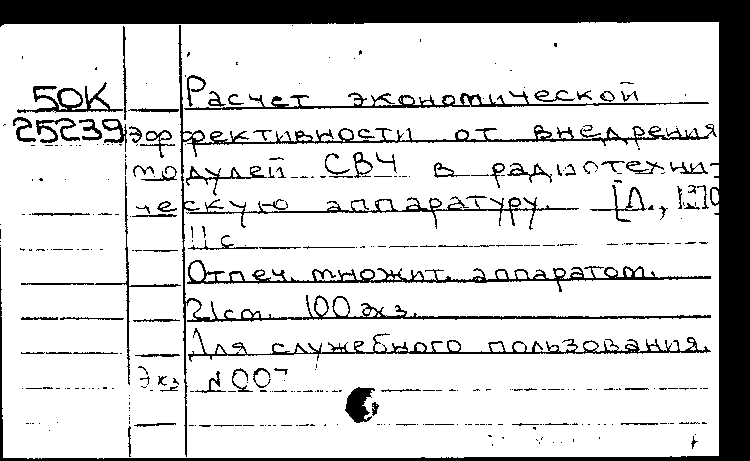 50К Расчет экономической
25239 эффективности от внедрения
модулей СВЧ в радиотехни-
ческую аппаратуру. [Л., 1970
11 с
Отпеч. множит. аппаратом.
21см. 100 экз.
Для служебного пользования.
Экз N 007